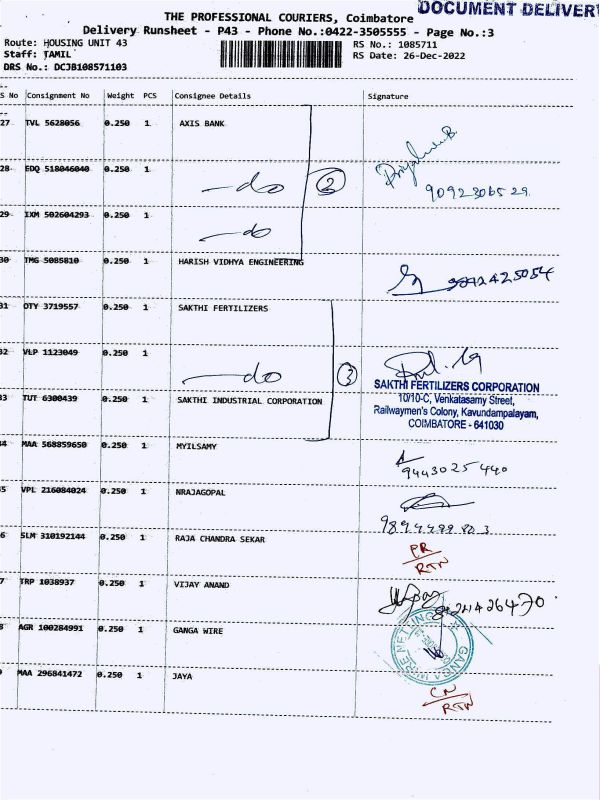 DOCUMENT DELIVER
THE PROFESSIONAL COURIERS, Coimbatore
Delivery Runsheet - P43 - Phone No.:0422-3505555 - Page No.:3
Route: HOUSING UNIT 43
RS No.: 1085711
Staff: TAMIL
RS Date: 26-Dec-2022
DRS No.: DCJB108571103
S No Consignment No Weight PCS Consignee Details Signature
27 TVL 5628056 0.250 1 AXIS BANK
28 EDQ 518046040 0.250 1 -do 2
9092306529
29 IXM 502604293 0.250 1 -do
30 TMG 5085810 0.250 1 HARISH VIDHYA ENGINEERING
31 OTY 3719557 0.250 1 SAKTHI FERTILIZERS
32 VLP 1123049 0.250 1 -do 3
33 TUT 6300439 0.250 1 SAKTHI INDUSTRIAL CORPORATION
SAKTHI FERTILIZERS CORPORATION
10/10-C, Venkatasamy Street,
Railwaymen's Colony, Kavundampalayam,
COIMBATORE - 641030
4 MAA 568859650 0.250 1 MYILSAMY
9443025440
5 VPL 216084024 0.250 1 NRAJAGOPAL
6 SLM 310192144 0.250 1 RAJA CHANDRA SEKAR
PR
RTN
7 TRP 1038937 0.250 1 VIJAY ANAND
8 AGR 100284991 0.250 1 GANGA WIRE
9 MAA 296841472 0.250 1 JAYA
CN
RTN